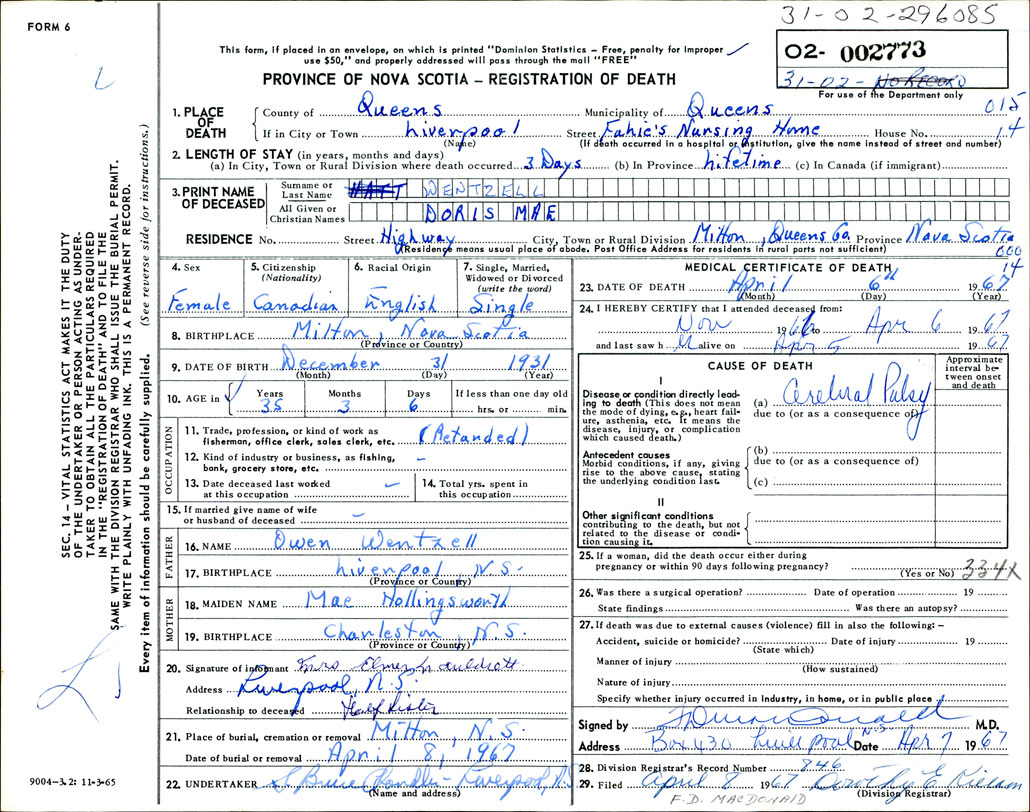 31-02-296085
FORM 6
This form, if placed in an envelope, on which is printed "Dominion Statistics – Free, penalty for improper
use $50," and properly addressed will pass through the mail "FREE"
02- 002773
31-02- No RECORD
For use of the Department only
PROVINCE OF NOVA SCOTIA – REGISTRATION OF DEATH
1. PLACE OF DEATH
County of Queens Municipality of Queens 015
If in City or Town Liverpool Street Fahie's Nursing Home House No. 14
(Name) (If death occurred in a hospital or institution, give the name instead of street and number)
2. LENGTH OF STAY (in years, months and days)
(a) In City, Town or Rural Division where death occurred 3 Days (b) In Province Lifetime (c) In Canada (if immigrant)
3. PRINT NAME OF DECEASED
Surname or Last Name WENTZELL
All Given or Christian Names DORIS MAE
RESIDENCE No. Street Highway City, Town or Rural Division Milton, Queens Co Province Nova Scotia
(Residence means usual place of abode. Post Office Address for residents in rural parts not sufficient)
000
14
4. Sex Female
5. Citizenship (Nationality) Canadian
6. Racial Origin English
7. Single, Married, Widowed or Divorced (write the word) Single
8. BIRTHPLACE Milton, Nova Scotia
(Province or Country)
9. DATE OF BIRTH December 31 1931
(Month) (Day) (Year)
10. AGE in Years 35 Months 3 Days 6 If less than one day old hrs. or min.
OCCUPATION
11. Trade, profession, or kind of work as fisherman, office clerk, sales clerk, etc. (Retarded)
12. Kind of industry or business, as fishing, bank, grocery store, etc. –
13. Date deceased last worked at this occupation –
14. Total yrs. spent in this occupation
15. If married give name of wife or husband of deceased –
FATHER
16. NAME Owen Wentzell
17. BIRTHPLACE Liverpool, N.S.
(Province or Country)
MOTHER
18. MAIDEN NAME Mae Hollingsworth
19. BIRTHPLACE Charleston, N.S.
(Province or Country)
20. Signature of informant Mrs Elmer
Address Liverpool, N.S.
Relationship to deceased Half Sister
21. Place of burial, cremation or removal Milton, N.S.
Date of burial or removal April 8, 1967
22. UNDERTAKER S. Bruce Chandler - Liverpool, N.S.
(Name and address)
MEDICAL CERTIFICATE OF DEATH
23. DATE OF DEATH April 6th 1967
(Month) (Day) (Year)
24. I HEREBY CERTIFY that I attended deceased from:
Nov 1966 to Apr 6 1967
and last saw h alive on Apr 5 1967
CAUSE OF DEATH
Approximate interval between onset and death
I
Disease or condition directly leading to death (This does not mean the mode of dying, e.g., heart failure, asthenia, etc. It means the disease, injury, or complication which caused death.)
(a) Cerebral Palsy
due to (or as a consequence of)
Antecedent causes
Morbid conditions, if any, giving rise to the above cause, stating the underlying condition last.
(b)
due to (or as a consequence of)
(c)
II
Other significant conditions contributing to the death, but not related to the disease or condition causing it.
25. If a woman, did the death occur either during
pregnancy or within 90 days following pregnancy?
(Yes or No) 334X
26. Was there a surgical operation? Date of operation 19
State findings Was there an autopsy?
27. If death was due to external causes (violence) fill in also the following: –
Accident, suicide or homicide? Date of injury 19
(State which)
Manner of injury
(How sustained)
Nature of injury
Specify whether injury occurred in Industry, in home, or in public place
Signed by M.D.
Address Box 430 Liverpool N.S. Date Apr 7 1967
28. Division Registrar's Record Number 846
29. Filed April 8 1967 Dorothy E
(Division Registrar)
F.D. MACDONALD
SEC. 14 – VITAL STATISTICS ACT MAKES IT THE DUTY
OF THE UNDERTAKER OR PERSON ACTING AS UNDER-
TAKER TO OBTAIN ALL THE PARTICULARS REQUIRED
IN THE "REGISTRATION OF DEATH" AND TO FILE THE
SAME WITH THE DIVISION REGISTRAR WHO SHALL ISSUE THE BURIAL PERMIT.
WRITE PLAINLY WITH UNFADING INK. THIS IS A PERMANENT RECORD.
Every item of information should be carefully supplied. (See reverse side for instructions.)
9004-3.2: 11-3-65